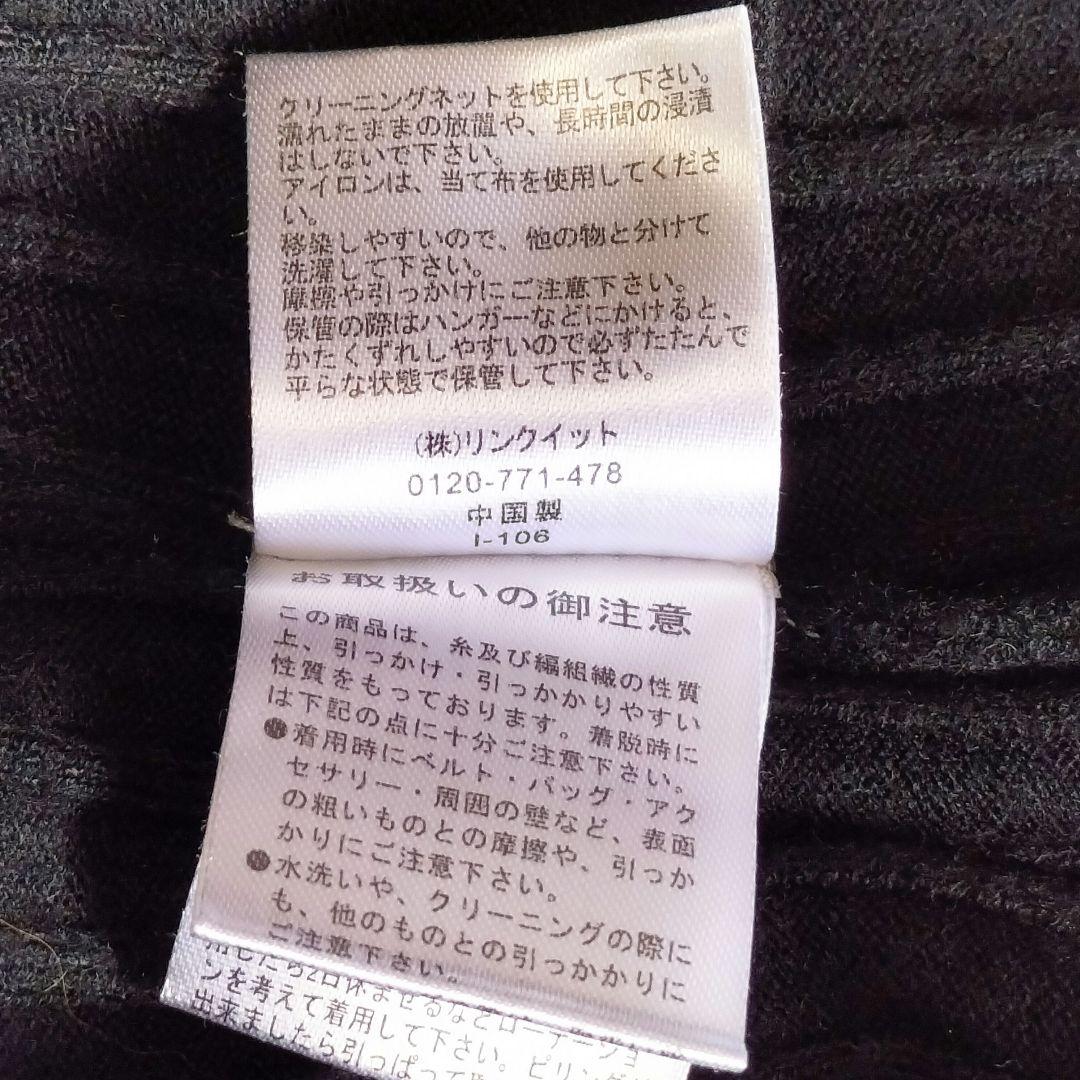 クリーニングネットを使用して下さい。
濡れたままの放置や、長時間の浸漬
はしないで下さい。
アイロンは、当て布を使用してくださ
い。
移染しやすいので、他の物と分けて
洗濯して下さい。
摩擦や引っかけにご注意下さい。
保管の際はハンガーなどにかけると、
かたくずれしやすいので必ずたたんで
平らな状態で保管して下さい。
(株)リンクイット
0120-771-478
中国製
I-106
お取扱いの御注意
この商品は、糸及び編組織の性質
上、引っかけ・引っかかりやすい
性質をもっております。着脱時に
は下記の点に十分ご注意下さい。
●着用時にベルト・バッグ・アク
セサリー・周囲の壁など、表面
の粗いものとの摩擦や、引っか
かりにご注意下さい。
●水洗いや、クリーニングの際に
も、他のものとの引っかかりに
ご注意下さい。
用したら2日休ませるなどローテーショ
ンを考えて着用して下さい。ピリング
出来ましたら引っぱって